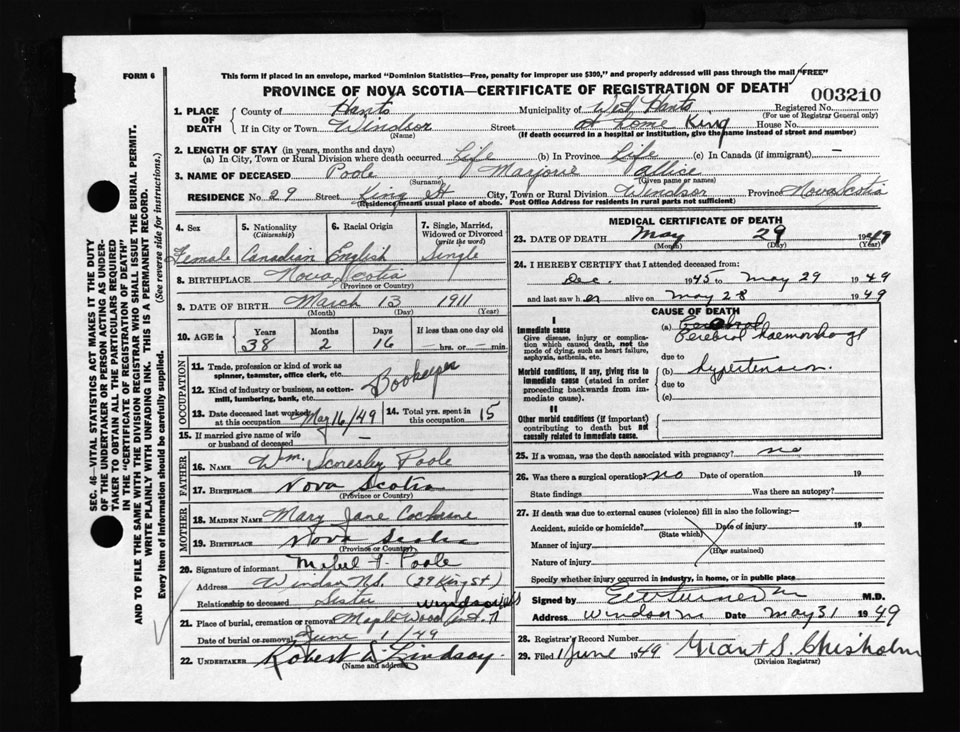 FORM 6
This form if placed in an envelope, marked "Dominion Statistics—Free, penalty for improper use $300," and properly addressed will pass through the mail "FREE"
PROVINCE OF NOVA SCOTIA—CERTIFICATE OF REGISTRATION OF DEATH
003210
1. PLACE OF DEATH
County of Hants Municipality of West Hants Registered No.
(For use of Registrar General only)
If in City or Town Windsor Street at home King House No.
(Name) (If death occurred in a hospital or Institution, give the name instead of street and number)
2. LENGTH OF STAY (in years, months and days)
(a) In City, Town or Rural Division where death occurred Life (b) In Province Life (c) In Canada (if immigrant) —
3. NAME OF DECEASED Poole Marjorie Allice
(Surname) (Given name or names)
RESIDENCE No. 29 Street King St City, Town or Rural Division Windsor Province Nova Scotia
(Residence means usual place of abode. Post Office Address for residents in rural parts not sufficient)
4. Sex
Female
5. Nationality
(Citizenship)
Canadian
6. Racial Origin
English
7. Single, Married, Widowed or Divorced
(write the word)
Single
8. BIRTHPLACE Nova Scotia
(Province or Country)
9. DATE OF BIRTH March 13 1911
(Month) (Day) (Year)
10. AGE in Years Months Days If less than one day old
38 2 16 —hrs. or —min.
OCCUPATION
11. Trade, profession or kind of work as spinner, teamster, office clerk, etc.
12. Kind of industry or business, as cotton-mill, lumbering, bank, etc.
Bookeeper
13. Date deceased last worked at this occupation May 16/49
14. Total yrs. spent in this occupation 15
15. If married give name of wife or husband of deceased —
FATHER
16. NAME Wm. Scoresby Poole
17. BIRTHPLACE Nova Scotia
(Province or Country)
MOTHER
18. MAIDEN NAME Mary Jane Cochrane
19. BIRTHPLACE Nova Scotia
(Province or Country)
20. Signature of informant Mabel F. Poole
Address Windsor N.S. (29 King St)
Relationship to deceased Sister
21. Place of burial, cremation or removal Maplewood Cem. Windsor
Date of burial or removal June 1/49
22. UNDERTAKER Robert A. Lindsay.
(Name and address)
MEDICAL CERTIFICATE OF DEATH
23. DATE OF DEATH May 29 1949
(Month) (Day) (Year)
24. I HEREBY CERTIFY that I attended deceased from:
Dec. 1945 to May 29 1949
and last saw her alive on May 28 1949
CAUSE OF DEATH
I
Immediate cause
Give disease, injury or complication which caused death, not the mode of dying, such as heart failure, asphyxia, asthenia, etc.
(a) Cerebral
Cerebral haemorrhage
due to
Morbid conditions, if any, giving rise to immediate cause (stated in order proceeding backwards from immediate cause).
(b) hypertension.
due to
(c)
II
Other morbid conditions (if important) contributing to death but not causally related to immediate cause.
25. If a woman, was the death associated with pregnancy? no
26. Was there a surgical operation no Date of operation 19
State findings Was there an autopsy?
27. If death was due to external causes (violence) fill in also the following:—
Accident, suicide or homicide? Date of injury 19
(State which)
Manner of injury
(How sustained)
Nature of injury
Specify whether injury occurred in industry, in home, or in public place
Signed by M.D.
Address Windsor Date May 31 1949
28. Registrar's Record Number
29. Filed 1 June 1949 Grant S. Chisholm
(Division Registrar)
SEC. 46—VITAL STATISTICS ACT MAKES IT THE DUTY
OF THE UNDERTAKER OR PERSON ACTING AS UNDERTAKER TO OBTAIN ALL THE PARTICULARS REQUIRED
IN THE "CERTIFICATE OF REGISTRATION OF DEATH"
AND TO FILE THE SAME WITH THE DIVISION REGISTRAR WHO SHALL ISSUE THE BURIAL PERMIT.
WRITE PLAINLY WITH UNFADING INK. THIS IS A PERMANENT RECORD.
Every item of information should be carefully supplied. (See reverse side for instructions.)